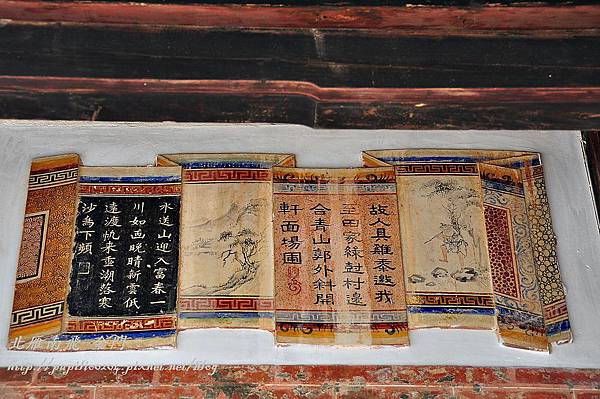 故人具雞黍邀我
至田家綠樹村邊
合青山郭外斜開
軒面場圃
水送山迎入富春一
川如画晚晴新雲低
遠渡帆来重潮落寒
沙鳥下頻
北雁南飛